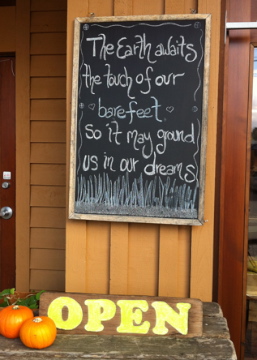 The Earth awaits
the touch of our
bare feet
so it may ground
us in our dreams
OPEN